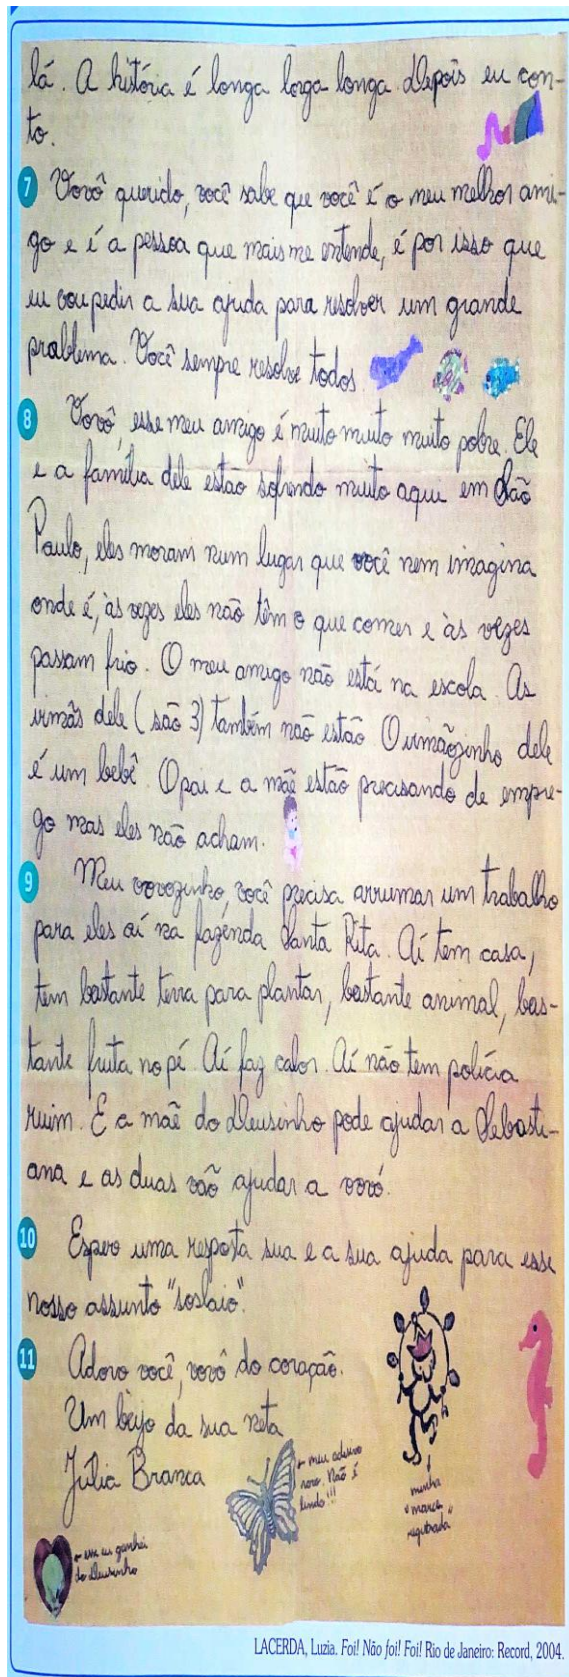 lá. A história é longa longa longa. Depois eu con-
to.
7 Vovô querido, você sabe que você é o meu melhor ami-
go e é a pessoa que mais me entende, é por isso que
eu vou pedir a sua ajuda para resolver um grande
problema. Você sempre resolve todos.
8 Vovô, esse meu amigo é muito muito muito pobre. Ele
e a família dele estão sofrendo muito aqui em São
Paulo, eles moram num lugar que você nem imagina
onde é, às vezes eles não têm o que comer e às vezes
passam frio. O meu amigo não está na escola. As
irmãs dele (são 3) também não estão. O irmãozinho dele
é um bebê. O pai e a mãe estão precisando de empre-
go mas eles não acham.
9 Meu vovozinho, você precisa arrumar um trabalho
para eles aí na fazenda Santa Rita. Aí tem casa,
tem bastante terra para plantar, bastante animal, bas-
tante fruta no pé. Aí faz calor. Aí não tem polícia
ruim. E a mãe do Deusinho pode ajudar a Sebasti-
ana e as duas vão ajudar a vovó.
10 Espero uma resposta sua e a sua ajuda para esse
nosso assunto "soslaio".
11 Adoro você, vovô do coração.
Um beijo da sua neta
Júlia Branca
meu adesivo
novo. Não é
lindo!!!
minha
"marca
registrada"
esse eu ganhei
do Deusinho
LACERDA, Luzia. Foi! Não foi! Foi! Rio de Janeiro: Record, 2004.